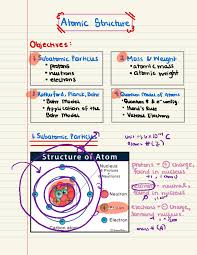 Atomic Structure
Objectives:
1 Subatomic Particles
• protons
• neutrons
• electrons
2 Mass & Weight
• atomic mass
• atomic weight
3 Rutherford, Planck, Bohr
• Bohr Model
• Application of the
Bohr Model
4 Quantum Model of Atoms
• Hund's Rule
1. Subatomic Particles
Structure of Atom
Nucleus
Protons +
Neutrons
Neutron
Electron
Carbon atom
protons = + charge,
found in nucleus
neutral,
found in nucleus
electrons = - charge,
nucleus